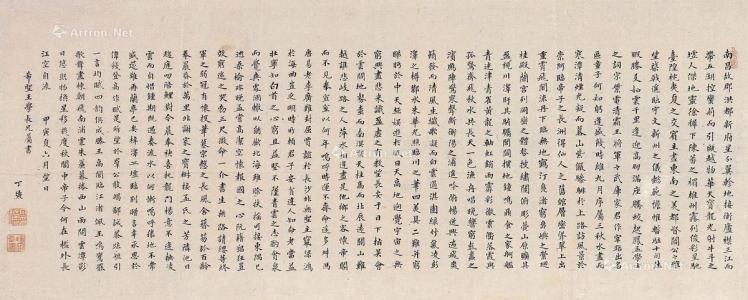 南昌故郡洪都新府星分翼軫地接衡廬襟三江而
帶五湖控蠻荊而引甌越物華天寶龍光射牛斗之
墟人傑地靈徐孺下陳蕃之榻雄州霧列俊彩星馳
臺隍枕夷夏之交賓主盡東南之美都督閻公之雅
望棨戟遙臨宇文新州之懿範襜帷暫駐十旬休
暇勝友如雲千里逢迎高朋滿座騰蛟起鳳孟學士
之詞宗紫電清霜王將軍之武庫家君作宰路出名
區童子何知躬逢勝餞時維九月序屬三秋潦水盡而
寒潭清煙光凝而暮山紫儼驂騑於上路訪風景於
崇阿臨帝子之長洲得仙人之舊館層巒聳翠上出
重霄飛閣流丹下臨無地鶴汀鳧渚窮島嶼之縈迴
桂殿蘭宮列岡巒之體勢披繡闥俯雕甍山原曠其
盈視川澤盱其駭矚閭閻撲地鐘鳴鼎食之家舸艦
迷津青雀黃龍之軸虹銷雨霽彩徹雲衢落霞與
孤鶩齊飛秋水共長天一色漁舟唱晚響窮彭蠡之
濱雁陣驚寒聲斷衡陽之浦遙吟俯暢逸興遄飛爽
籟發而清風生纖歌凝而白雲遏睢園綠竹氣凌彭
澤之樽鄴水朱華光照臨川之筆四美具二難并窮
睇眄於中天極娛遊於暇日天高地迥覺宇宙之無
窮興盡悲來識盈虛之有數望長安於日下指吳會
於雲間地勢極而南溟深天柱高而北辰遠關山難
越誰悲失路之人萍水相逢盡是他鄉之客懷帝閽
而不見奉宣室以何年嗚呼時運不齊命途多舛馮
唐易老李廣難封屈賈誼於長沙非無聖主竄梁鴻
於海曲豈乏明時所賴君子安貧達人知命老當益
壯寧知白首之心窮且益堅不墜青雲之志酌貪泉
而覺爽處涸轍以猶歡北海雖賒扶搖可接東隅已
逝桑榆非晚孟嘗高潔空懷報國之心阮籍猖狂豈
效窮途之哭勃三尺微命一介書生無路請纓等終
軍之弱冠有懷投筆慕宗愨之長風舍簪笏於百齡
奉晨昏於萬里非謝家之寶樹接孟氏之芳鄰他日
趨庭叨陪鯉對今晨奉袂喜托龍門楊意不逢撫凌
雲而自惜鍾期既遇奏流水以何慚嗚呼勝地不常
盛筵難再蘭亭已矣梓澤丘墟臨別贈言幸承恩於
偉餞登高作賦是所望於群公敢竭鄙誠恭疏短引
一言均賦四韻俱成滕王高閣臨江渚佩玉鳴鸞罷
歌舞畫棟朝飛南浦雲珠簾暮捲西山雨閒雲潭影
日悠悠物換星移幾度秋閣中帝子今何在檻外長
江空自流
甲寅夏六月望日
希聖王學長兄屬書
丁